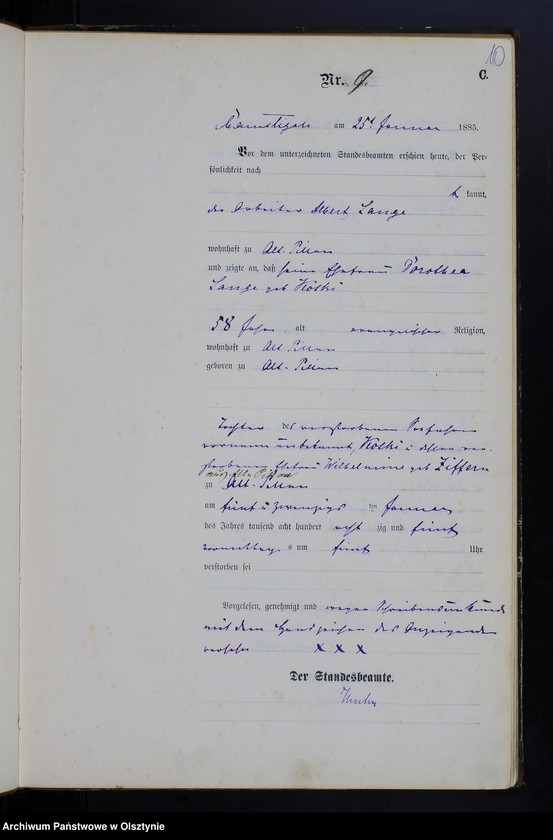 10
Nr. 9.
C.
Camstigall am 25t Januar 1885.
Vor dem unterzeichneten Standesbeamten erschien heute, der Per-
sönlichkeit nach
kannt,
der Arbeiter Albert Lange
wohnhaft zu Alt-Pillau
und zeigte an, daß seine Ehefrau Dorothea
Lange geb
58 Jahre alt evangelischer Religion,
wohnhaft zu Alt Pillau
geboren zu Alt-Pillau
Tochter des verstorbenen
vornamen unbekannt, u dessen ver-
storbenen Ehefrau Wilhelmine geb Ziffern
zu Alt-Pillau
am fünf u zwanzigs ten Januar
des Jahres tausend acht hundert acht zig und fünf
vormittag s um fünf Uhr
verstorben sei
Vorgelesen, genehmigt und wegen Schreibensunkunde
mit dem Handzeichen des Anzeigenden
versehen X X X
Der Standesbeamte.
Archiwum Państwowe w Olsztynie